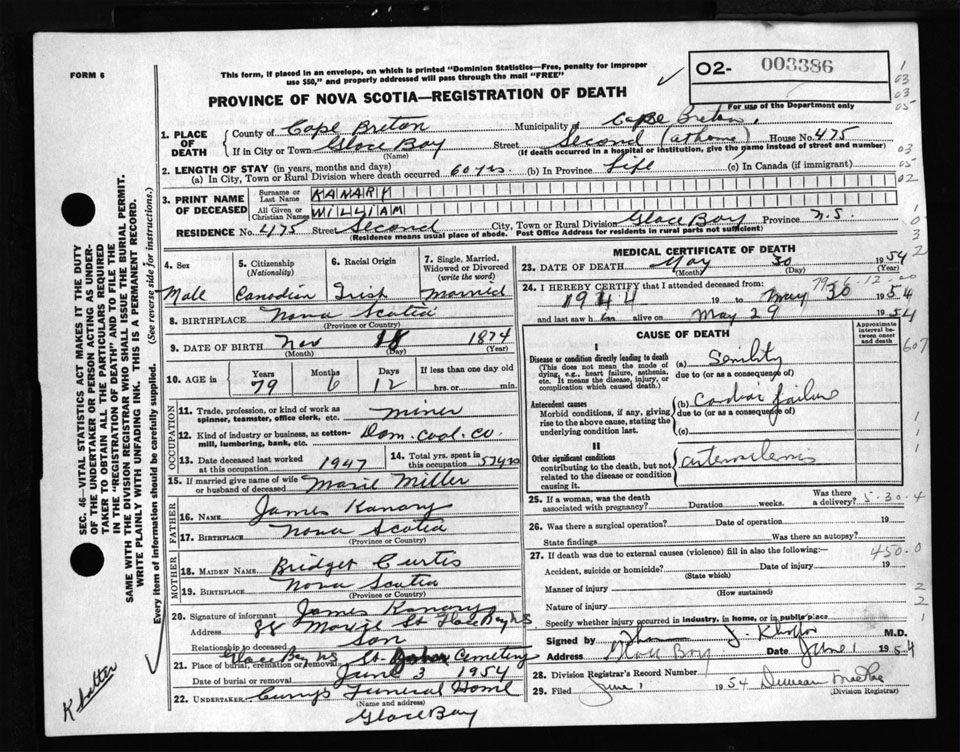 FORM 6
This form, if placed in an envelope, on which is printed "Dominion Statistics—Free, penalty for improper
use $50," and properly addressed will pass through the mail "FREE"
O2- 003386
For use of the Department only
PROVINCE OF NOVA SCOTIA—REGISTRATION OF DEATH
1. PLACE OF DEATH
County of Cape Breton Municipality of Cape Breton
If in City or Town Glace Bay Street Second (at home) House No. 475
(Name) (If death occurred in a hospital or institution, give the name instead of street and number)
2. LENGTH OF STAY (in years, months and days)
(a) In City, Town or Rural Division where death occurred 60 yrs. (b) In Province Life (c) In Canada (if immigrant)
3. PRINT NAME OF DECEASED
Surname or Last Name KANARY
All Given or Christian Names WILLIAM
RESIDENCE No. 475 Street Second City, Town or Rural Division Glace Bay Province N.S.
(Residence means usual place of abode. Post Office Address for residents in rural parts not sufficient)
4. Sex 5. Citizenship (Nationality) 6. Racial Origin 7. Single, Married, Widowed or Divorced (write the word)
Male Canadian Irish Married
8. BIRTHPLACE Nova Scotia
(Province or Country)
9. DATE OF BIRTH Nov 18 1874
(Month) (Day) (Year)
10. AGE in Years Months Days If less than one day old
79 6 12 hrs. or min.
OCCUPATION
11. Trade, profession, or kind of work as spinner, teamster, office clerk, etc. miner
12. Kind of industry or business, as cotton-mill, lumbering, bank, etc. Dom. Coal. Co.
13. Date deceased last worked at this occupation 1947 14. Total yrs. spent in this occupation 57 yrs
15. If married give name of wife or husband of deceased Marie Miller
FATHER
16. NAME James Kanary
17. BIRTHPLACE Nova Scotia
(Province or Country)
MOTHER
18. MAIDEN NAME Bridget Curtis
19. BIRTHPLACE Nova Scotia
(Province or Country)
20. Signature of informant James Kanary
Address 88 St Glace Bay NS
Relationship to deceased Son
21. Place of burial, cremation or removal Glace Bay NS St. Cemetery
Date of burial or removal June 3 1954
22. UNDERTAKER Curry's Funeral Home
(Name and address)
Glace Bay
MEDICAL CERTIFICATE OF DEATH
23. DATE OF DEATH May 30 1954
(Month) (Day) (Year)
24. I HEREBY CERTIFY that I attended deceased from:
1944 19 to May 30 1954
and last saw h im alive on May 29 1954
CAUSE OF DEATH
Approximate interval between onset and death
I
Disease or condition directly leading to death (a) Senility
(This does not mean the mode of dying, e.g., heart failure, asthenia, etc. It means the disease, injury, or complication which caused death.)
due to (or as a consequence of)
Antecedent causes (b) Cardiac failure
Morbid conditions, if any, giving rise to the above cause, stating the underlying condition last.
due to (or as a consequence of)
(c)
II
Other significant conditions contributing to the death, but not related to the disease or condition causing it.
arteriosclerosis
25. If a woman, was the death associated with pregnancy? Duration weeks. Was there a delivery?
5-30-4
26. Was there a surgical operation? Date of operation 19
State findings Was there an autopsy?
27. If death was due to external causes (violence) fill in also the following:
450.0
Accident, suicide or homicide? Date of injury 19
(State which)
Manner of injury
(How sustained)
Nature of injury
Specify whether injury occurred in industry, in home, or in public place
Signed by M.D.
Address Glace Bay Date June 1 1954
28. Division Registrar's Record Number
29. Filed June 1 1954 Duncan
(Division Registrar)
SEC. 46 - VITAL STATISTICS ACT MAKES IT THE DUTY
OF THE UNDERTAKER OR PERSON ACTING AS UNDER-
TAKER TO OBTAIN ALL THE PARTICULARS REQUIRED
IN THE "REGISTRATION OF DEATH" AND TO FILE THE
SAME WITH THE DIVISION REGISTRAR WHO SHALL ISSUE THE BURIAL PERMIT.
WRITE PLAINLY WITH UNFADING INK. THIS IS A PERMANENT RECORD.
Every item of information should be carefully supplied. (See reverse side for instructions.)